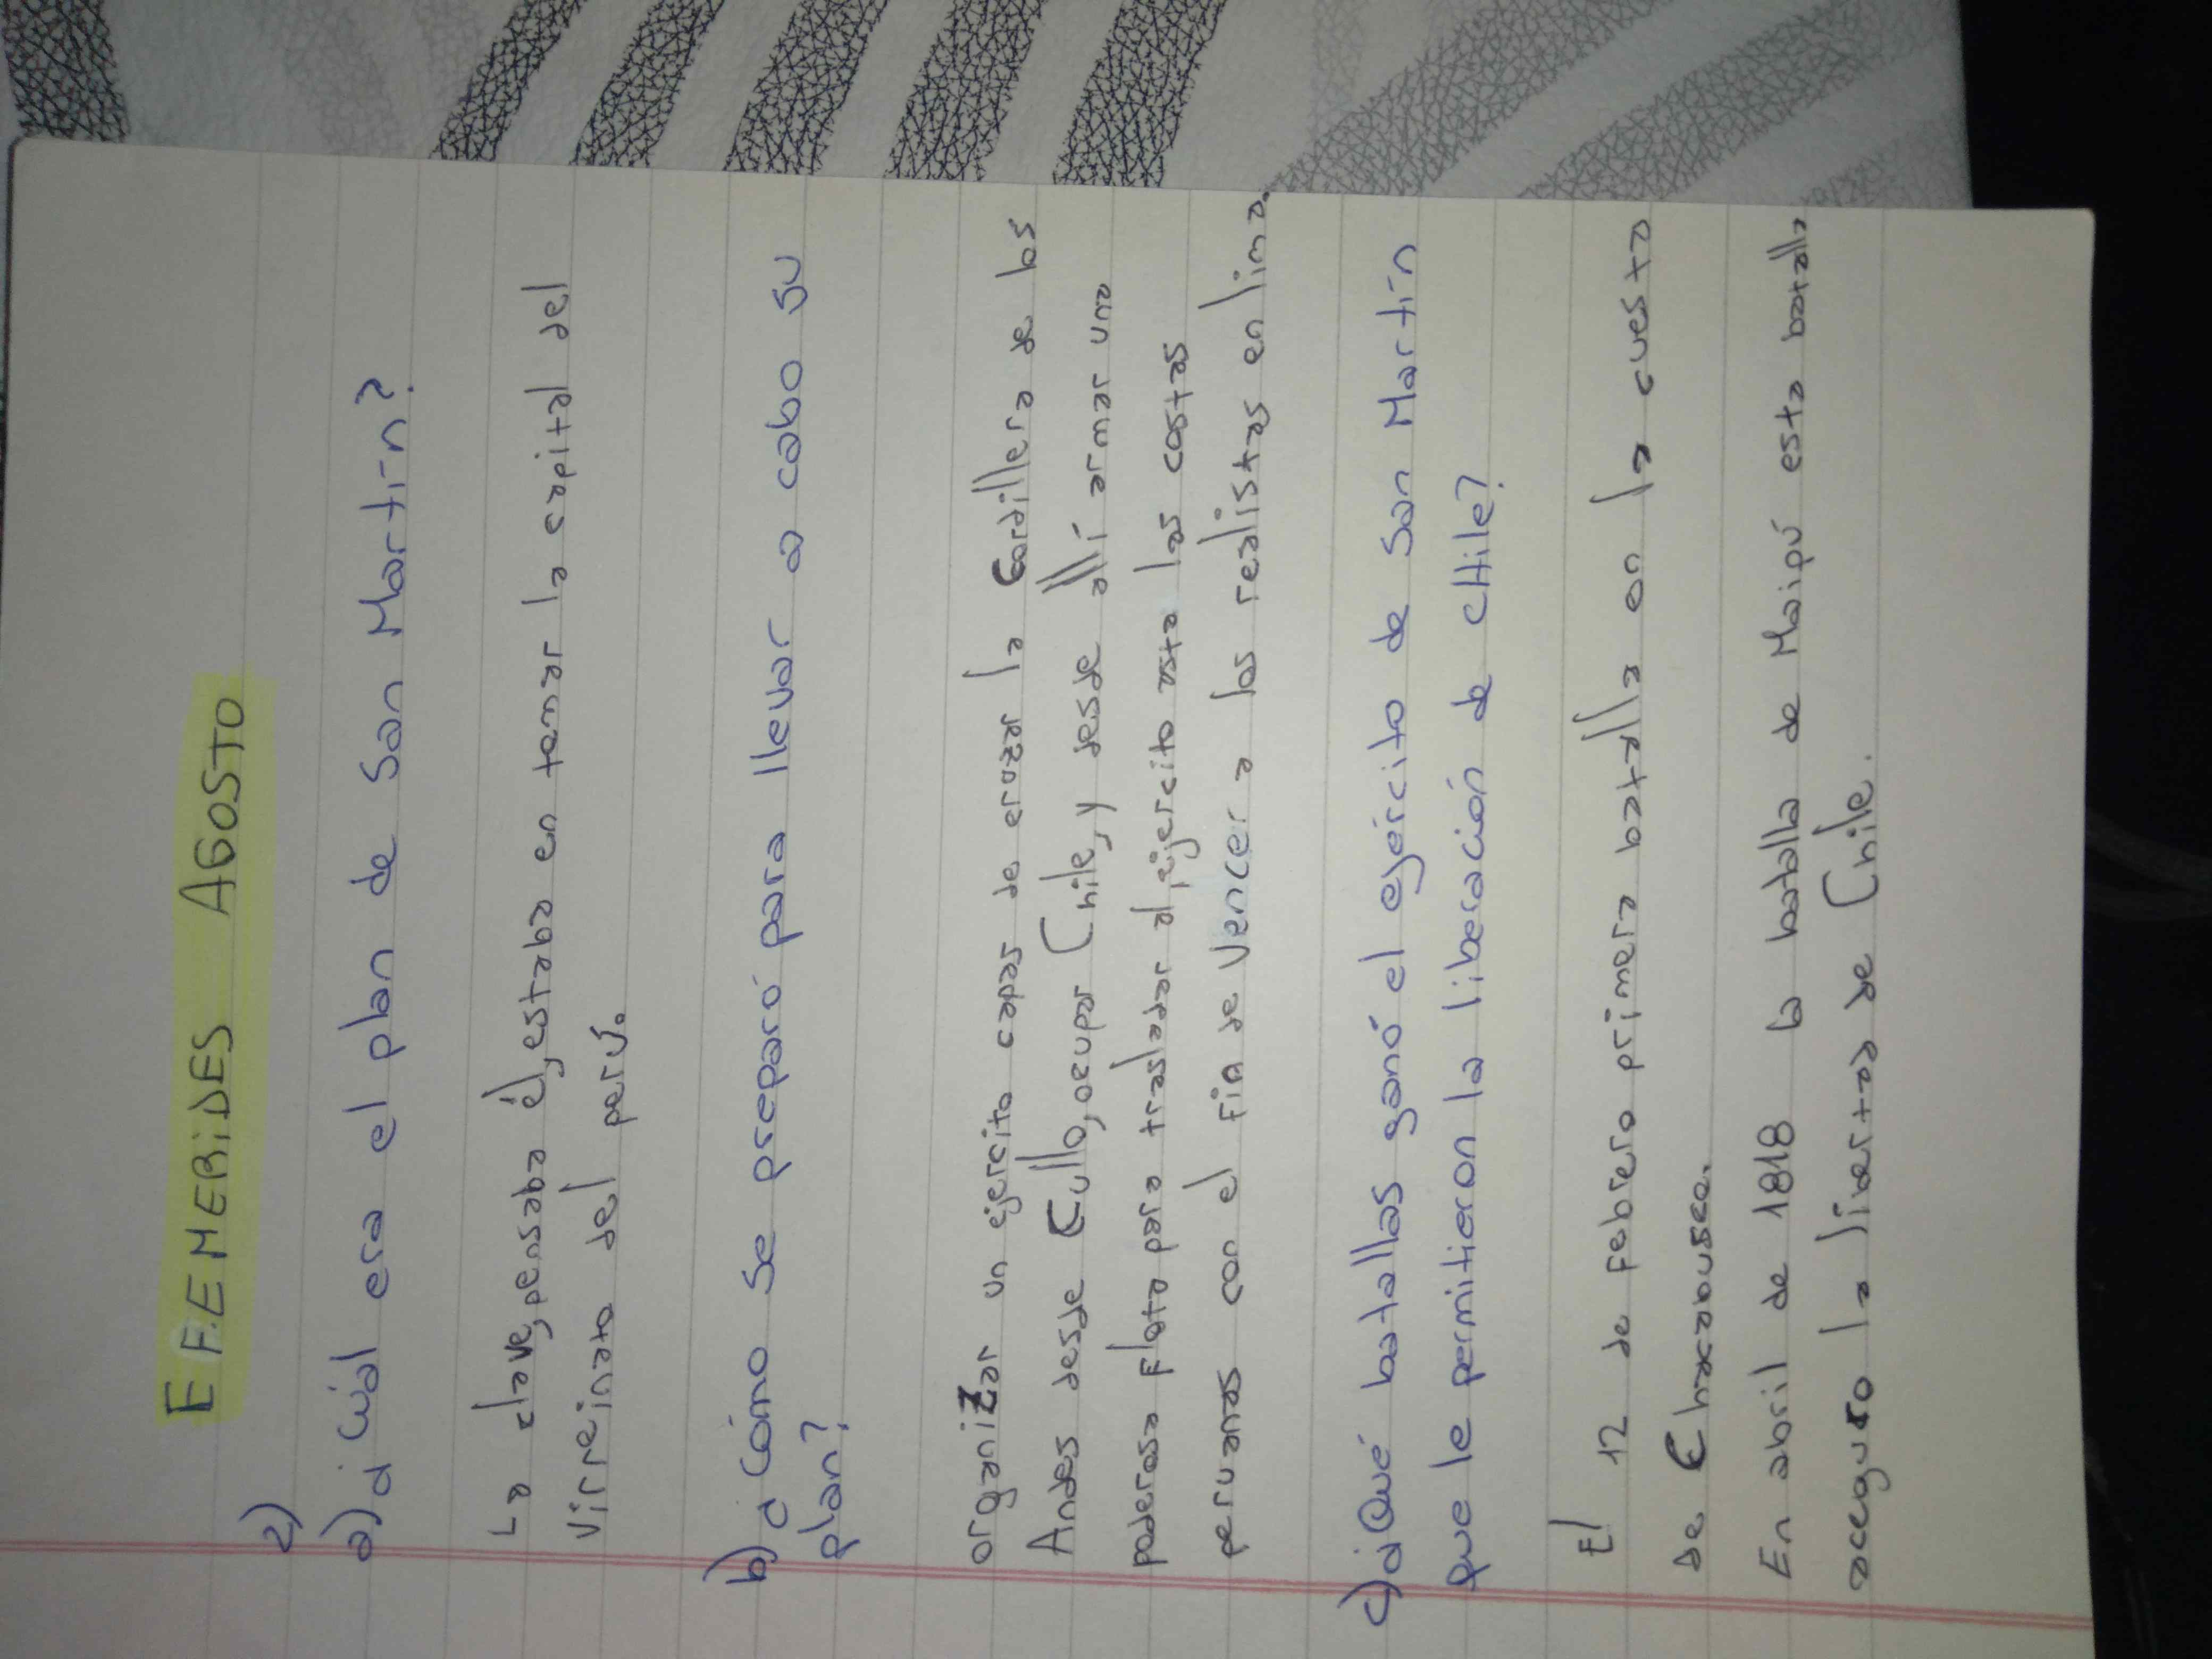 EFEMERIDES AGOSTO
2)
a) ¿Cúal era el plan de San Martín?
La clave, pensaba él, estaba en tomar la capital del
virreinato del perú.
b) ¿Cómo se preparó para llevar a cabo su
plan?
organizar un ejercito capas de cruzar la Cordillera de los
Andes desde Cullo, ocupar Chile, y desde allí armar una
poderosa flota para trasladar al ejercito asta las costas
peruanas con el fin de vencer a los realistas en lima.
c) ¿Qué batallas ganó el ejército de San Martín
que le permitieron la liberación de CHile?
El 12 de febrero primera batalla en la cuesta
de Chacabusee.
En abril de 1818 la batalla de Maipú esta batalla
aceguro la liertad de Chile.